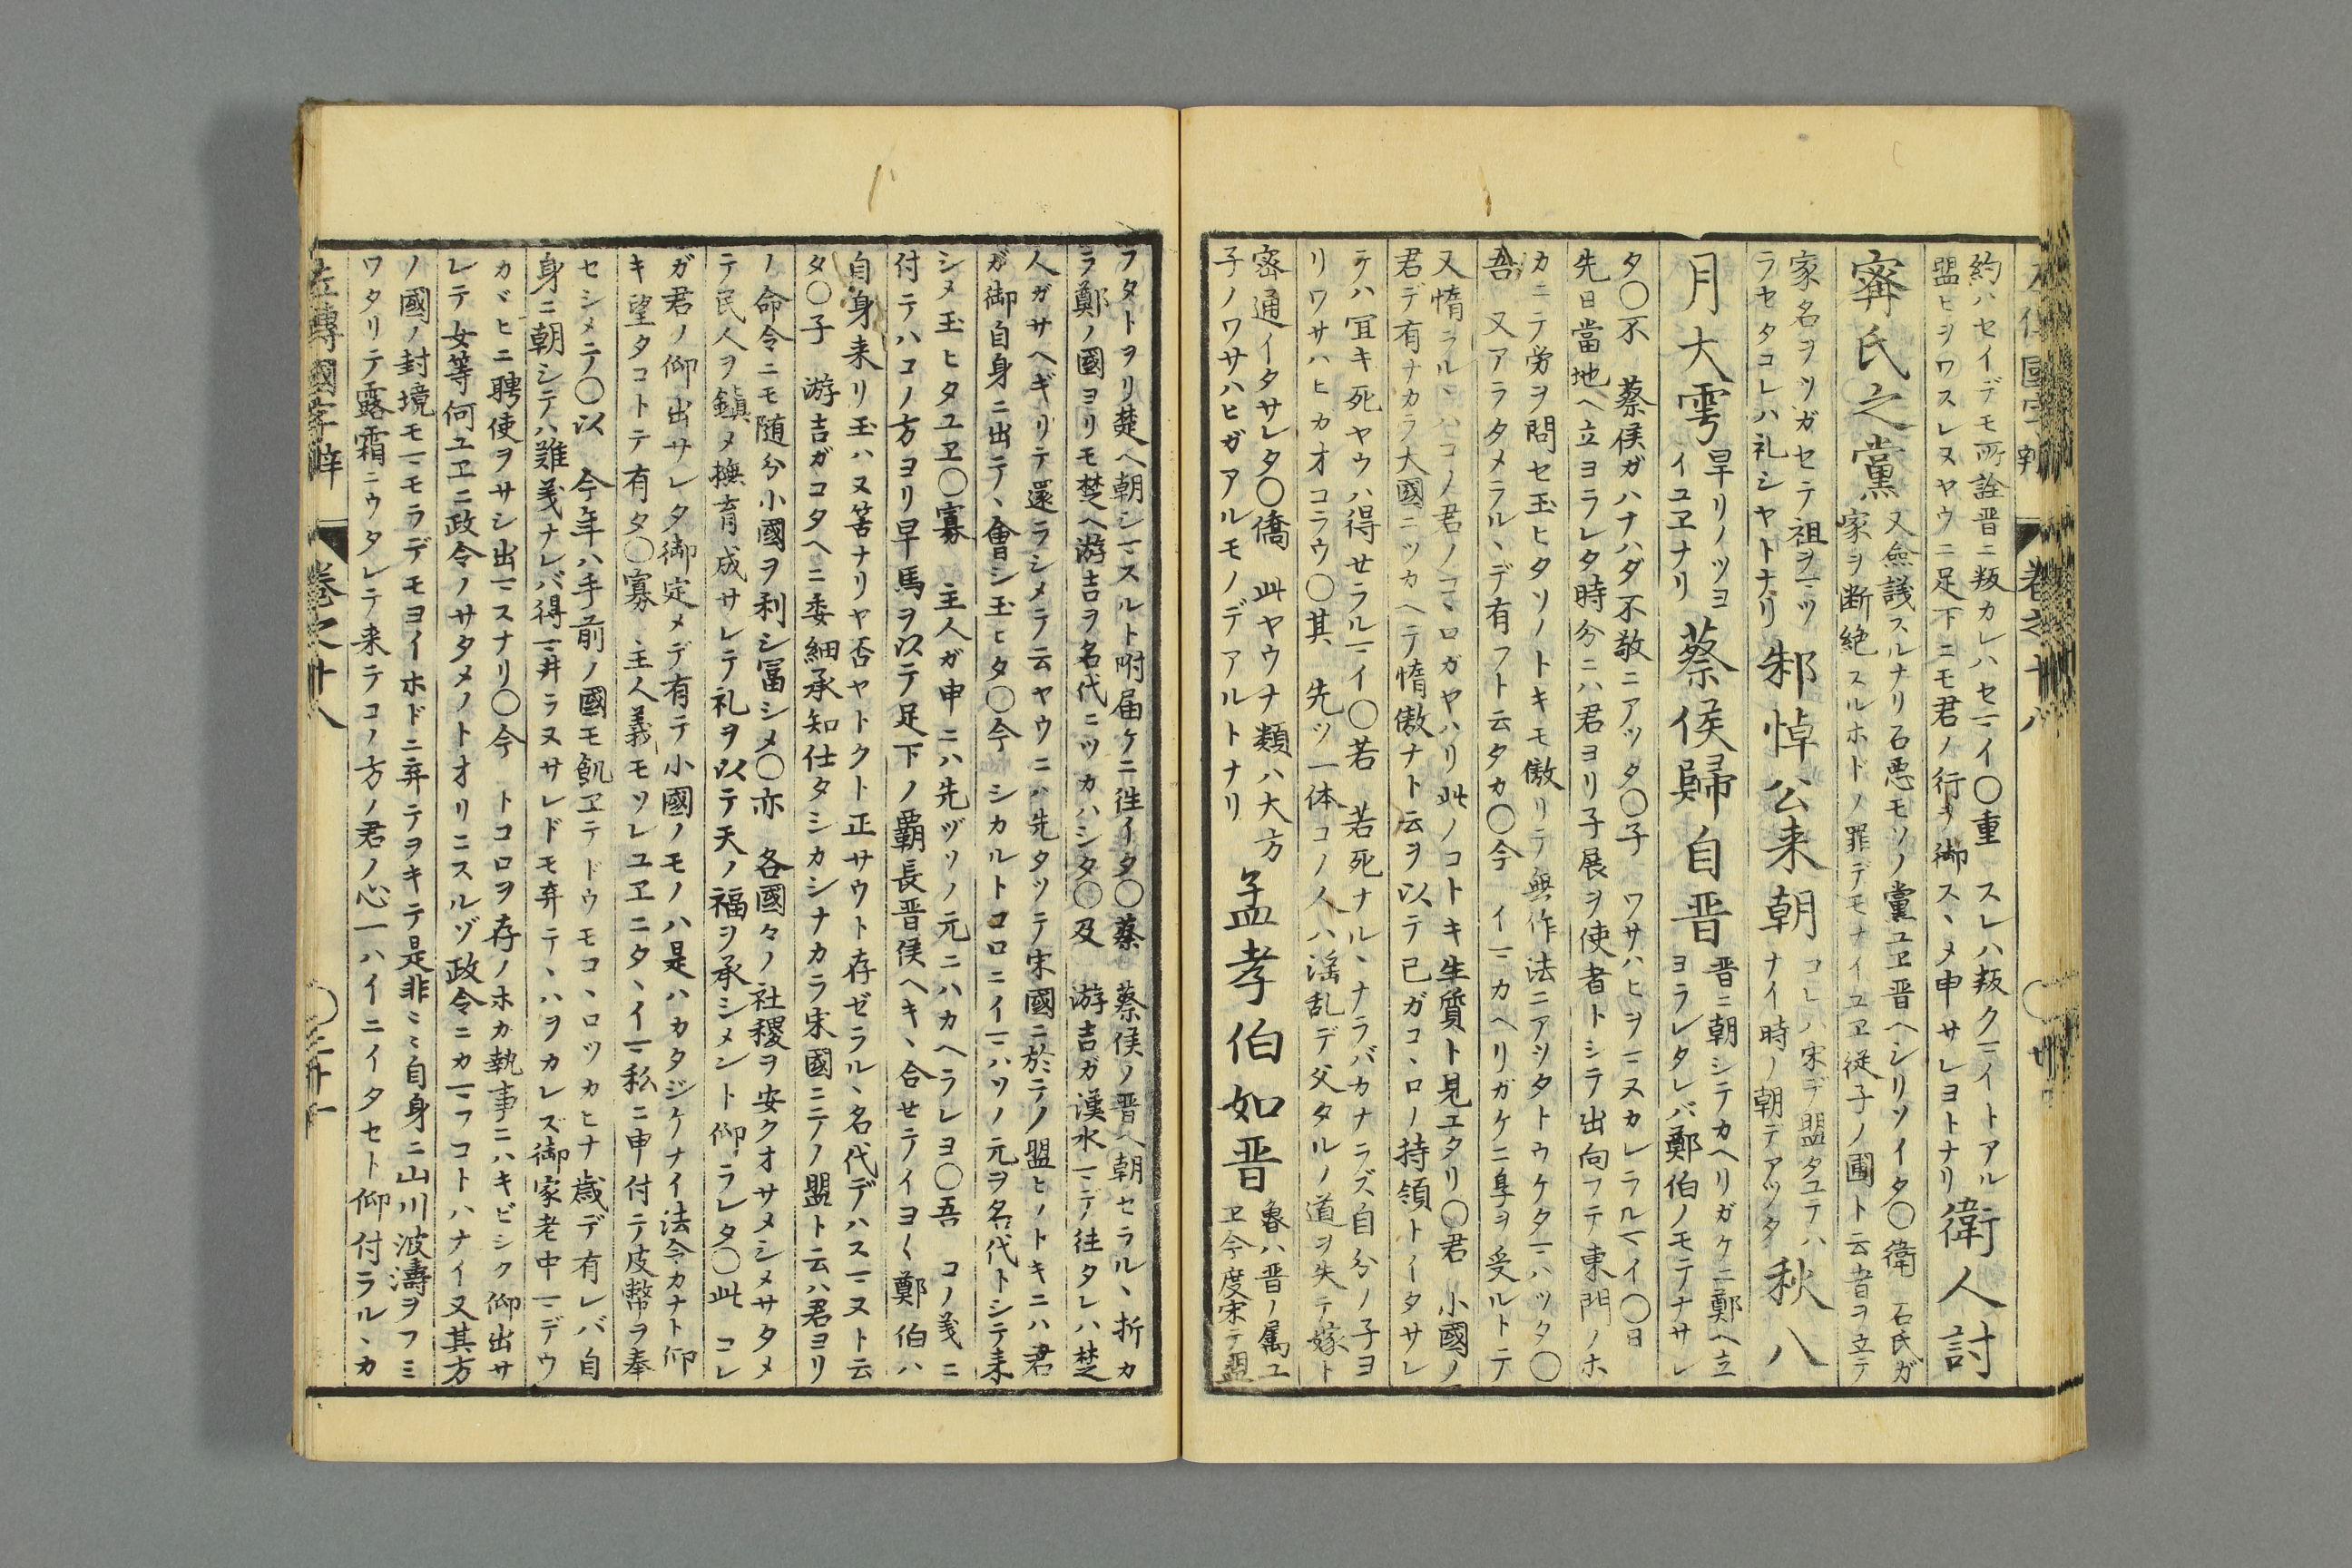 約ハセイデモ所詮晋ニ叛カレハセマイ〇重　スレハ叛クマイトアル
盟ヒヲワスレヌヤウニ足下ニモ君ノ行キ御スヽメ申サレヨトナリ
衛人討
甯氏之黨
又僉議スルナリ石悪モソノ黨ユヱ晋ヘシリソイタ〇衛　石氏ガ
家ヲ断絶スルホドノ罪デモナイユヱ従子ノ圃ト云者ヲ立テ
家名ヲツガセテ祖ヲマツ
ラセタコレハ礼シヤトナリ
邾悼公来朝
コレハ宋デ盟タユテハ
ナイ時ノ朝デアツタ
秋八
月大雩
旱リノツヨ
イユヱナリ
蔡侯歸自晋
晋ニ朝シテカヘリガケニ鄭ヘ立
ヨラレタレバ鄭伯ノモテナサレ
タ〇不　蔡侯ガハナハダ不敬ニアツタ〇子　ワサハヒヲマヌカレラルマイ〇日
先日當地ヘ立ヨラレタ時分ニハ君ヨリ子展ヲ使者トシテ出向フテ東門ノホ
カニテ労ヲ問セ玉ヒタソノトキモ傲リテ無作法ニアツタトウケタマハツタ〇
吾　又アラタメラルヽデ有フト云タカ〇今　イマカヘリガケニ享ヲ受ルトテ
又惰ラルヽハコノ君ノコヽロガヤハリ此ノコトキ生質ト見エタリ〇君　小國ノ
君デ有ナカラ大國ニツカヘテ惰傲ナト云ヲ以テ已ガコヽロノ持領トイタサレ
テハ冝キ死ヤウハ得せラルマイ〇若　若死ナルヽナラバカナラズ自分ノ子ヨ
リワサハヒカオコラウ〇其　先ツ一体コノ人ハ淫乱デ父タルノ道ヲ失テ嫁ト
密通イタサレタ〇僑　此ヤウナ類ハ大方
子ノワサハヒガアルモノデアルトナリ
孟孝伯如晋
魯ハ晋ノ属ユ
ヱ今度宋テ盟
フタトヲリ楚ヘ朝シマスルト咐届ケニ徃イタ〇蔡　蔡侯ノ晋ヘ朝セラルヽ折カ
ラ鄭ノ國ヨリモ楚ヘ游吉ヲ名代ニツカハシタ〇及　游吉ガ漢水マデ往タレハ楚
人ガサヘギリテ還ラシメテ云ヤウニハ先タツテ宋國ニ於テノ盟ヒノトキニハ君
ガ御自身ニ出テヽ會シ玉ヒタ〇今　シカルトコロニイマハソノ元ヲ名代トシテ来
シメ玉ヒタユヱ〇寡　主人ガ申ニハ先ヅソノ元ニハカヘラレヨ〇吾　コノ義ニ
付テハコノ方ヨリ早馬ヲ以テ足下ノ覇長晋侯ヘキヽ合せテイヨ〱鄭伯ハ
自身来リ玉ハヌ筈ナリヤ否ヤトクト正サウト存ゼラルヽ名代デハスマヌト云
タ〇子　游吉ガコタヘニ委細承知仕タシカシナカラ宋國ニテノ盟ト云ハ君ヨリ
ノ命令ニモ随分小國ヲ利シ冨シメ〇亦　各國々ノ社稷ヲ安クオサメシメサタメ
テ民人ヲ鎮メ撫育成サレテ礼ヲ以テ天ノ福ヲ承シメント仰ラレタ〇此　コレ
ガ君ノ仰出サレタ御定メデ有テ小國ノモノハ是ハカタジケナイ法令カナト仰
キ望タコトテ有タ〇寡　主人義モソレユヱニタヽイマ私ニ申付テ皮幣ヲ奉
セシメテ〇以　今年ハ手前ノ國モ飢ヱテドウモコヽロツカヒナ歳デ有レバ自
身ニ朝シテハ難義ナレバ得マ井ラヌサレドモ弃テヽハヲカレズ御家老中マデウ
カヾヒニ聘使ヲサシ出マスナリ〇今　トコロヲ存ノホカ執事ニハキビシク仰出サ
レテ女等何ユヱニ政令ノサタメノトオリニスルゾ政令ニカマフコトハナイ又其方
ノ國ノ封境モマモラデモヨイホドニ弃テヲキテ是非ニ〻自身ニ山川波濤ヲフミ
ワタリテ露霜ニウタレテ来テコノ方ノ君ノ心一ハイニイタセト仰付ラルヽカ
左傳國字辯　巻之十八　〇三十一